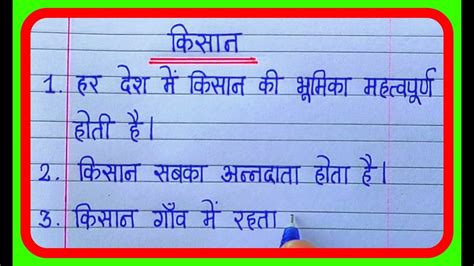 किसान
1. हर देश में किसान की भूमिका महत्वपूर्ण
होती है।
2. किसान सबका अन्नदाता होता है।
3. किसान गाँव में रहता